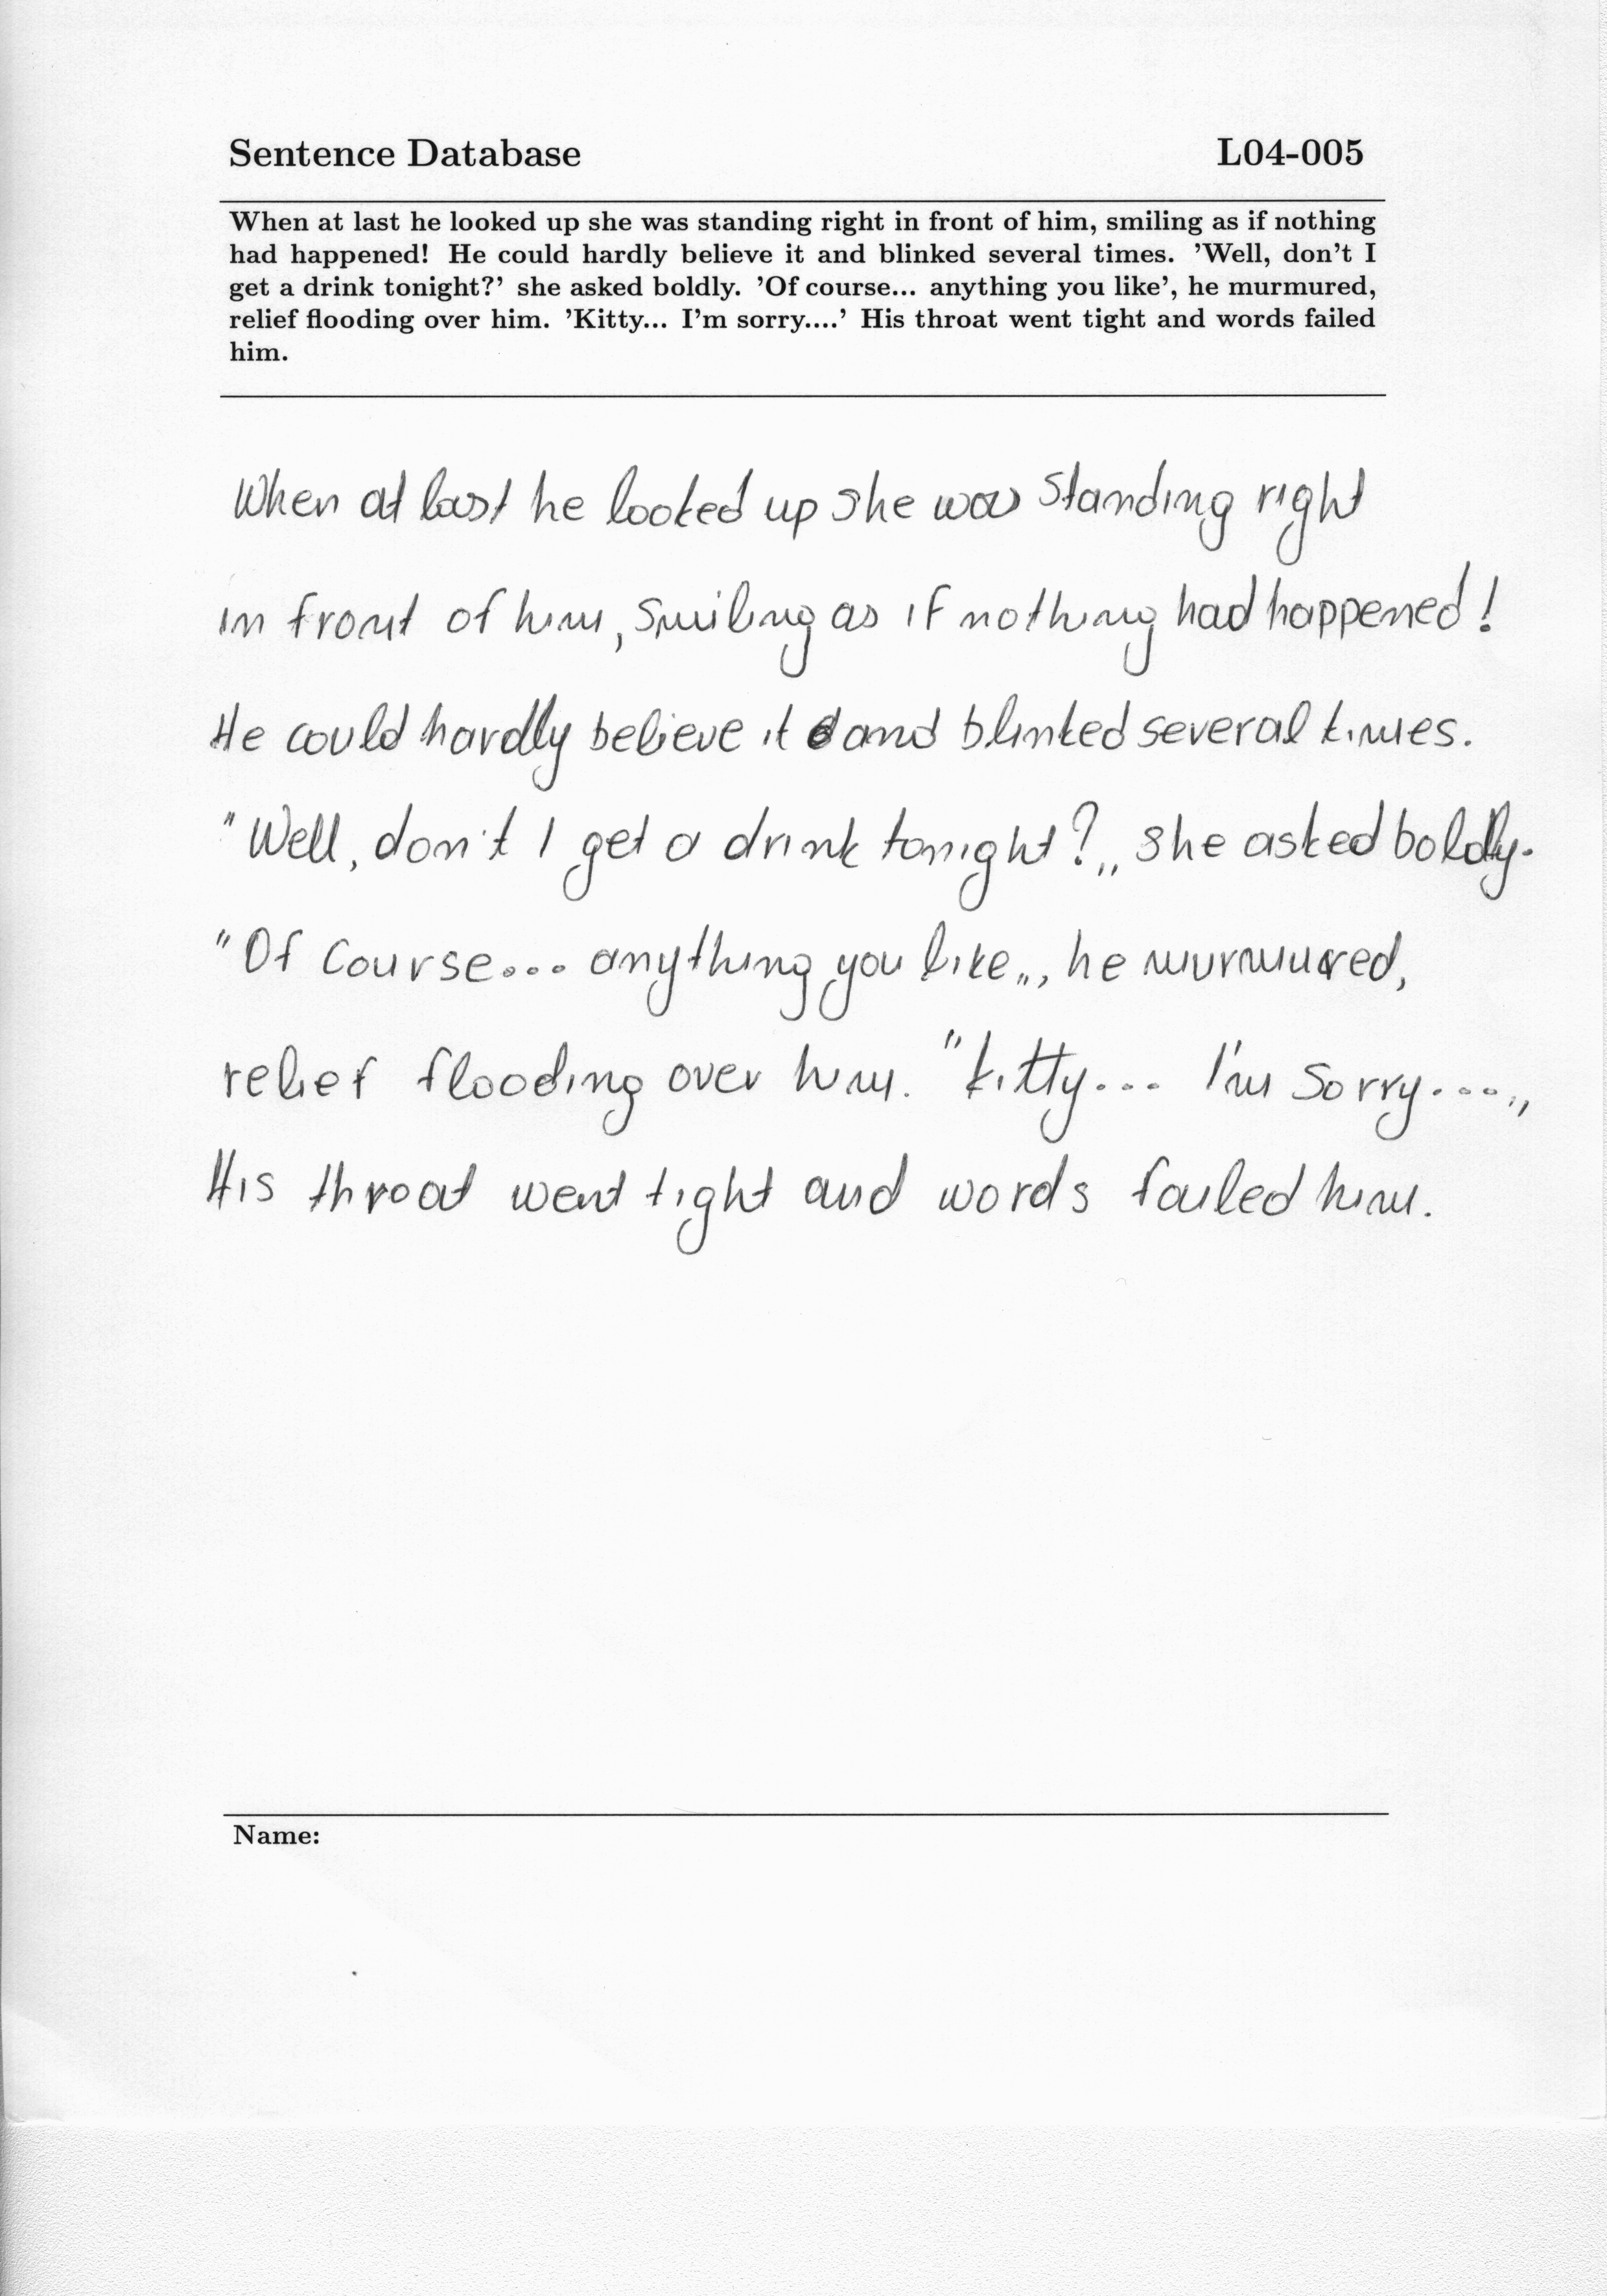 Sentence Database L04-005
When at last he looked up she was standing right in front of him, smiling as if nothing
had happened! He could hardly believe it and blinked several times. 'Well, don't I
get a drink tonight?' she asked boldly. 'Of course... anything you like', he murmured,
relief flooding over him. 'Kitty... I'm sorry....' His throat went tight and words failed
him.
When at last he looked up she was standing right
in front of him, smiling as if nothing had happened!
He could hardly believe it and blinked several times.
"Well, don't I get a drink tonight?„ she asked boldly.
"Of course... anything you like„, he murmured,
relief flooding over him. "Kitty... I'm sorry....„
His throat went tight and words failed him.
Name: